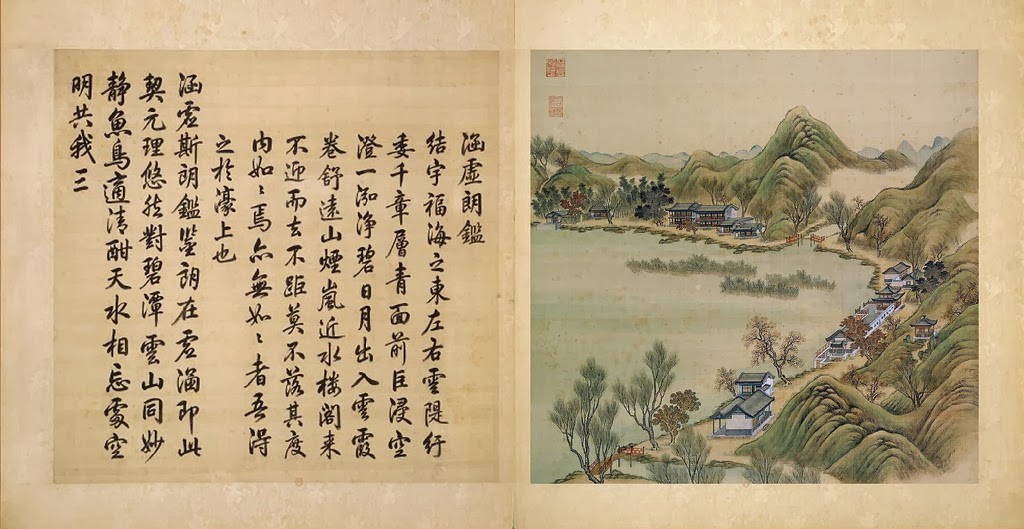 涵虛朗鑑
結宇福海之東左右雲隄紆
委千章層青面前巨浸空
澄一泓淨碧日月出入雲霞
卷舒遠山煙嵐近水樓閣来
不迎而去不距莫不落其度
内如〻焉亦無如〻者吾得
之於濠上也
涵虛斯朗鑑鑒朗在虛涵即此
契元理悠然對碧潭雲山同妙
静魚鳥適清酣天水相忘處空
明共我三